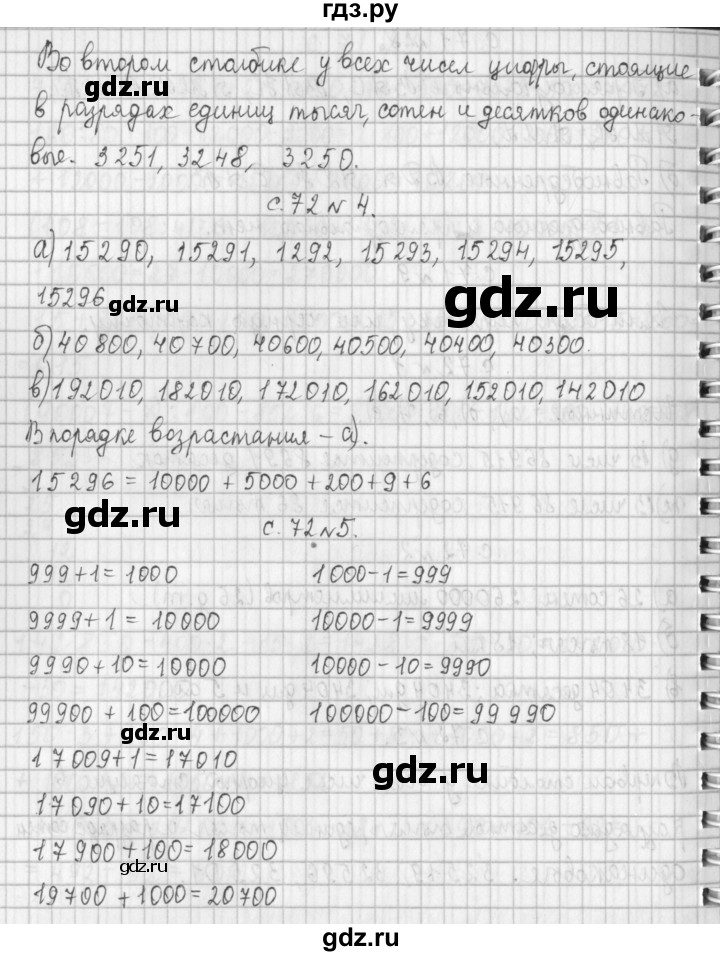 гдз.ру
Во втором столбике у всех чисел цифры, стоящие
в разрядах единиц тысяч, сотен и десятков одинако-
вые. 3251, 3248, 3250.
с. 72 № 4.
а) 15290, 15291, 1292, 15293, 15294, 15295,
15296
б) 40800, 40700, 40600, 40500, 40400, 40300.
в) 192010, 182010, 172010, 162010, 152010, 142010
В порядке возрастания – а).
15296 = 10000 + 5000 + 200 + 9 + 6
с. 72 № 5.
999+1=1000 1000-1=999
9999+1 = 10000 10000-1=9999
9990+10=10000 10000-10=9990
99900 + 100=100000 100000-100=99990
17009+1=17010
17090+10=17100
17900+100=18000
19700 +1000=20700
gdz.ru
gdz.ru
gdz.ru
gdz.ru
gdz.ru
gdz.ru
gdz.ru
gdz.ru
gdz.ru